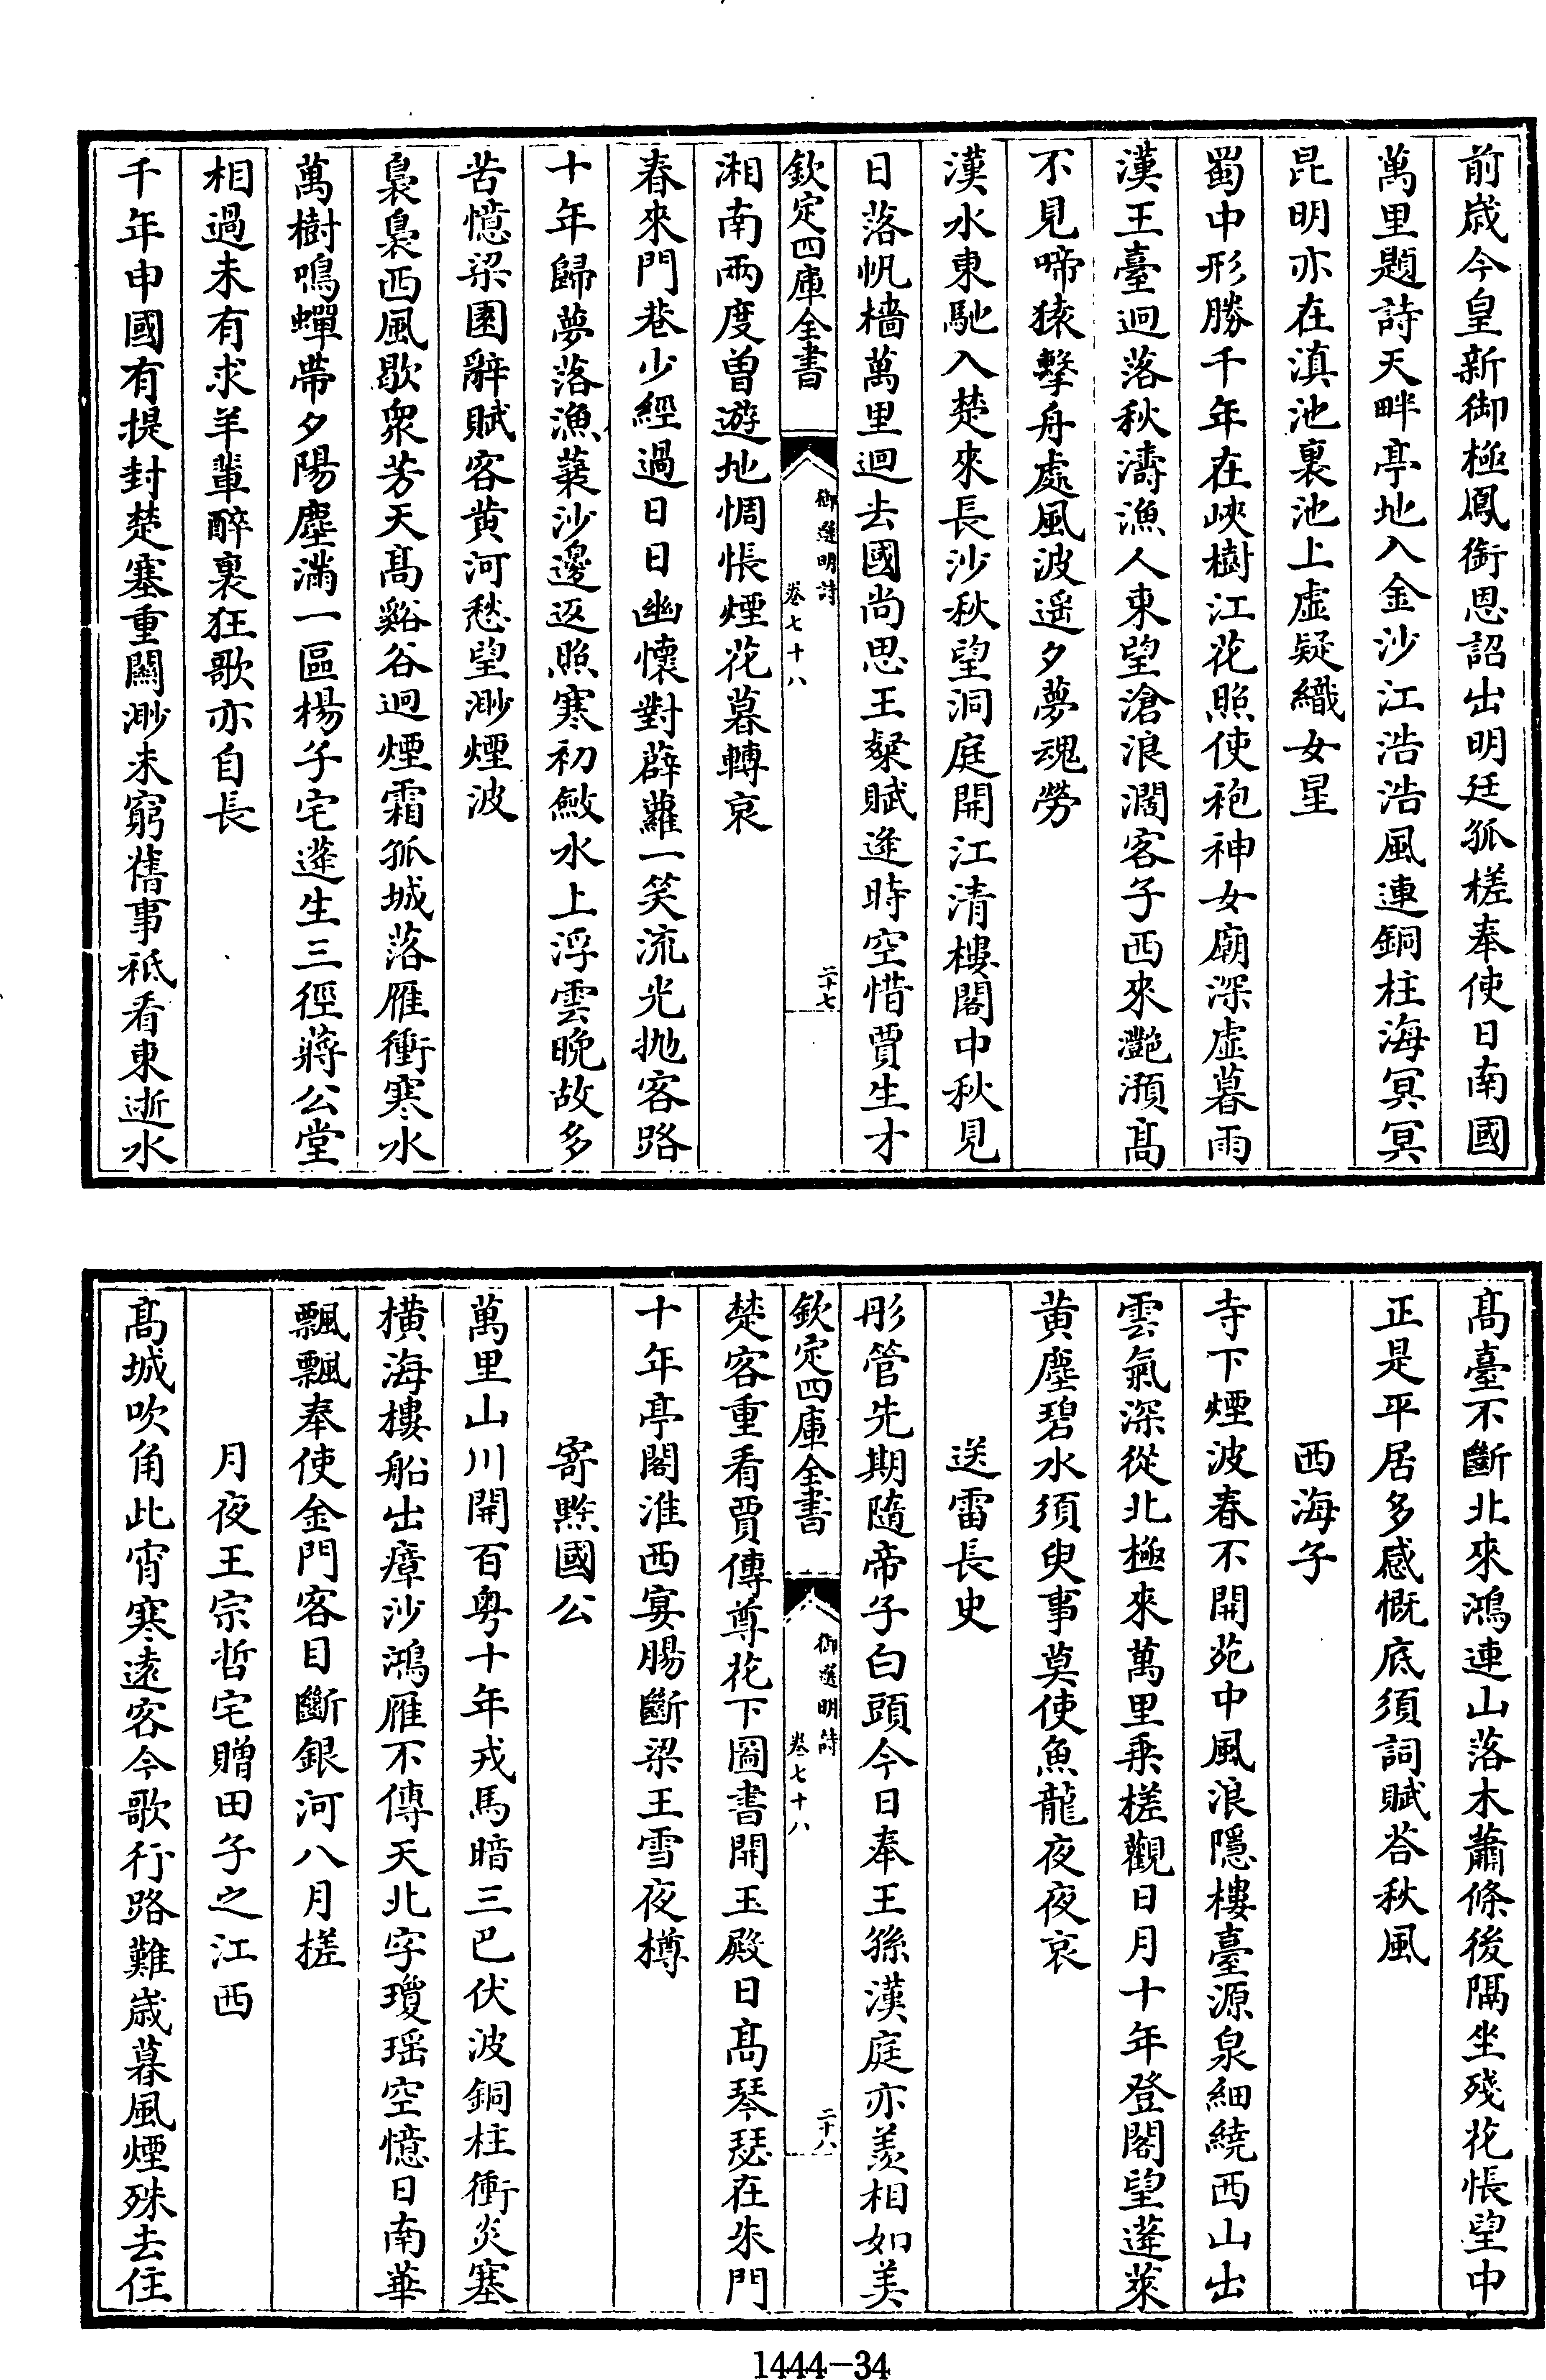 前歳今皇新御極鳳銜恩詔出明廷孤槎奉使日南國
萬里題詩天畔亭地入金沙江浩浩風連銅柱海冥冥
昆明亦在滇池裏池上虛疑織女星
蜀中形勝千年在峽樹江花照使袍神女廟深虛暮雨
漢王臺迥落秋濤漁人東望滄浪濶客子西來灔澦髙
不見啼猿擊舟處風波遥夕夢魂勞
漢水東馳入楚來長沙秋望洞庭開江清樓閣中秋見
日落帆檣萬里迴去國尚思王粲賦逢時空惜賈生才
欽定四庫全書
御選明詩
卷七十八
二十七
湘南兩度曾遊地惆悵煙花暮轉哀
春來門巷少經過日日幽懷對薜蘿一笑流光抛客路
十年歸夢落漁蓑沙邊返照寒初斂水上浮雲晚故多
苦憶梁園辭賦客黄河愁望渺煙波
裊裊西風歇衆芳天髙谿谷迥煙霜孤城落雁衝寒水
萬樹鳴蟬帶夕陽塵滿一區楊子宅蓬生三徑蔣公堂
相過未有求羊輩醉裏狂歌亦自長
千年申國有提封楚塞重闗渺未窮舊事祗看東逝水
髙臺不斷北來鴻連山落木蕭條後隔坐殘花悵望中
正是平居多感慨底須詞賦荅秋風
西海子
寺下煙波春不開苑中風浪隱樓臺源泉細繞西山出
雲氣深從北極來萬里乗槎觀日月十年登閣望蓬萊
黄塵碧水須臾事莫使魚龍夜夜哀
送雷長史
彤管先期隨帝子白頭今日奉王孫漢庭亦羨相如美
欽定四庫全書
御選明詩
卷七十八
二十八
楚客重看賈傅尊花下圖書開玉殿日髙琴瑟在朱門
十年亭閣淮西宴腸斷梁王雪夜樽
寄黔國公
萬里山川開百粤十年戎馬暗三巴伏波銅柱衝炎塞
横海樓船出瘴沙鴻雁不傳天北字瓊瑶空憶日南華
飄飄奉使金門客目斷銀河八月槎
月夜王宗哲宅贈田子之江西
髙城吹角此宵寒遠客今歌行路難歳暮風煙殊去住
1444-34